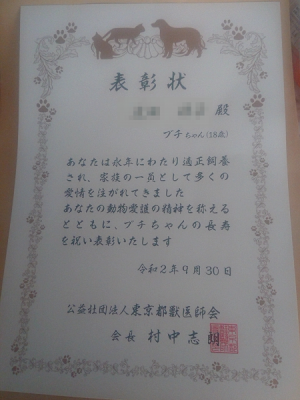 表彰状
殿
プチちゃん(18歳)
あなたは永年にわたり適正飼養
され、家族の一員として多くの
愛情を注がれてきました
あなたの動物愛護の精神を称える
とともに、プチちゃんの長寿
を祝い表彰いたします
令和2年9月30日
公益社団法人東京都獣医師会
会長 村中志朗